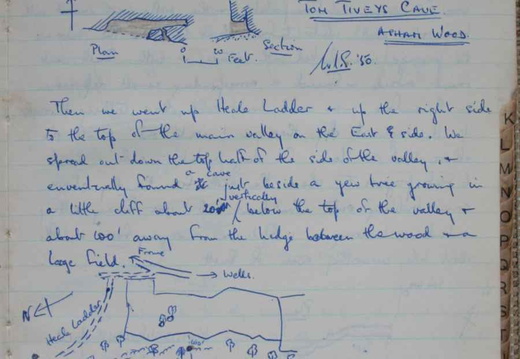 TOM TIVEYS CAVE
ASHAM WOOD.
Plan
Section
0 10
Feet.
'50.
Then we went up Heale Ladder & up the right side
to the top of the main valley on the East side. We
spread out down the top half of the side of the valley, &
eventually found a cave just beside a yew tree growing in
a little cliff about 20' vertically below the top of the valley &
about 100' away from the hedge between the wood & a
large field.
Frome
→ Wells.
N
Heale Ladder
K
L
M
N
O
P
Q
R
S
T